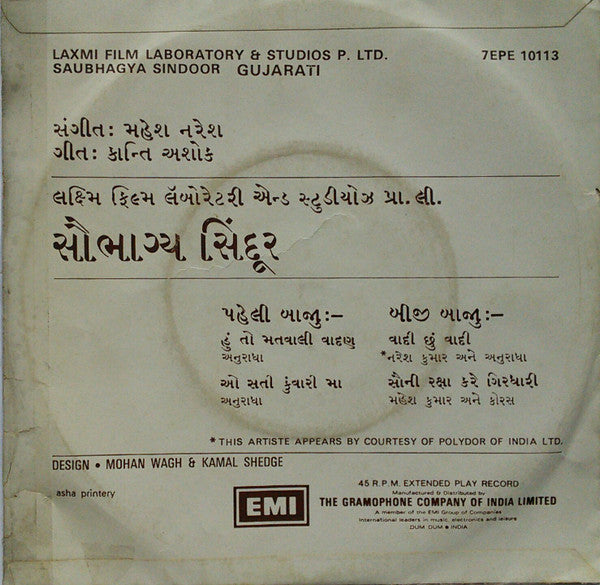 LAXMI FILM LABORATORY & STUDIOS P. LTD. 7EPE 10113
SAUBHAGYA SINDOOR GUJARATI
સંગીત: મહેશ નરેશ
ગીત: કાન્તિ અશોક
લક્ષ્મિ ફિલ્મ લૅબોરેટરી એન્ડ સ્ટુડીયોઝ પ્રા.લી.
સૌભાગ્ય સિંદૂર
પહેલી બાજુ :–
હું તો મતવાલી વાદણ
અનુરાધા
ઓ સતી કુંવારી મા
અનુરાધા
બીજી બાજુ :–
વાદી છું વાદી
*નરેશ કુમાર અને અનુરાધા
સૌની રક્ષા કરે ગિરધારી
મહેશ કુમાર અને કોરસ
* THIS ARTISTE APPEARS BY COURTESY OF POLYDOR OF INDIA LTD.
DESIGN • MOHAN WAGH & KAMAL SHEDGE
asha printery
EMI
45 R.P.M. EXTENDED PLAY RECORD
Manufactured & Distributed by
THE GRAMOPHONE COMPANY OF INDIA LIMITED
A member of the EMI Group of Companies
International leaders in music, electronics and leisure
DUM DUM • INDIA